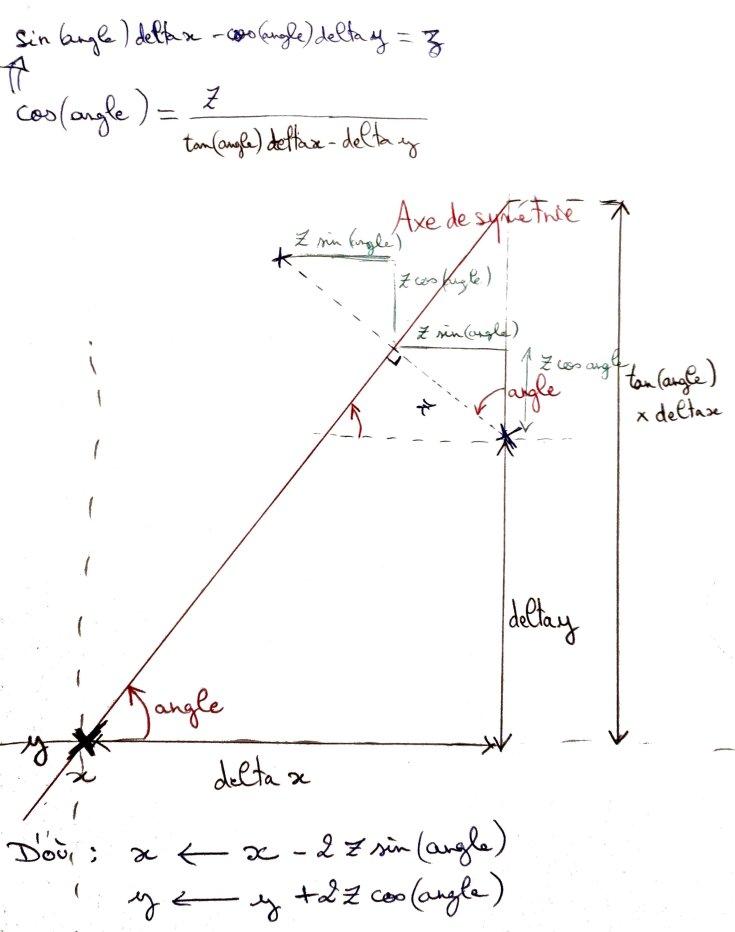 sin(angle) deltax - cos(angle) deltay = z
cos(angle) = z / (tan(angle) deltax - deltay)
Axe de symétrie
z sin(angle)
z cos(angle)
z sin(angle)
z cos angle
angle
z
tan(angle)
x deltax
deltay
angle
y
x
delta x
D'où : x ← x - 2 z sin(angle)
y ← y + 2 z cos(angle)